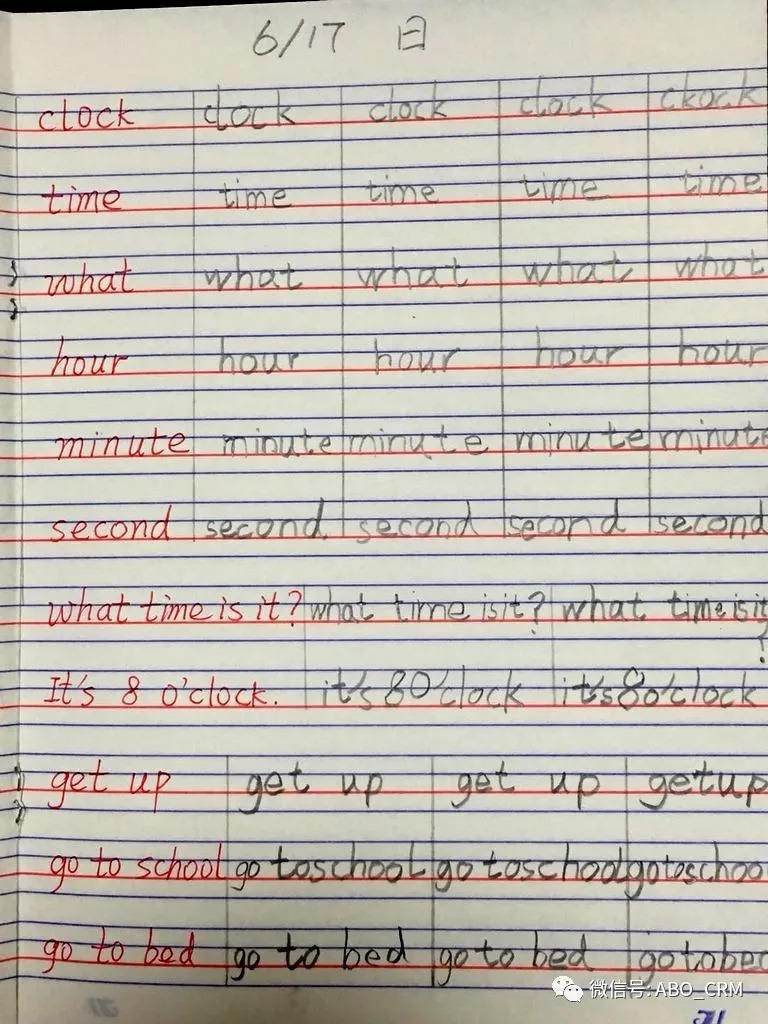 6/17 日
clock clock clock clock ckock
time time time time time
what what what what what
hour hour hour hour hour
minute minute minute minute minute
second second second second second
what time is it? what time isit? what time is it?
It's 8 o'clock. it's 8O'clock it's 8o'clock
get up get up get up getup
go to school go toschool go toschool gotoschoo
go to bed go to bed go to bed gotobed
微信号: ABO_CRM